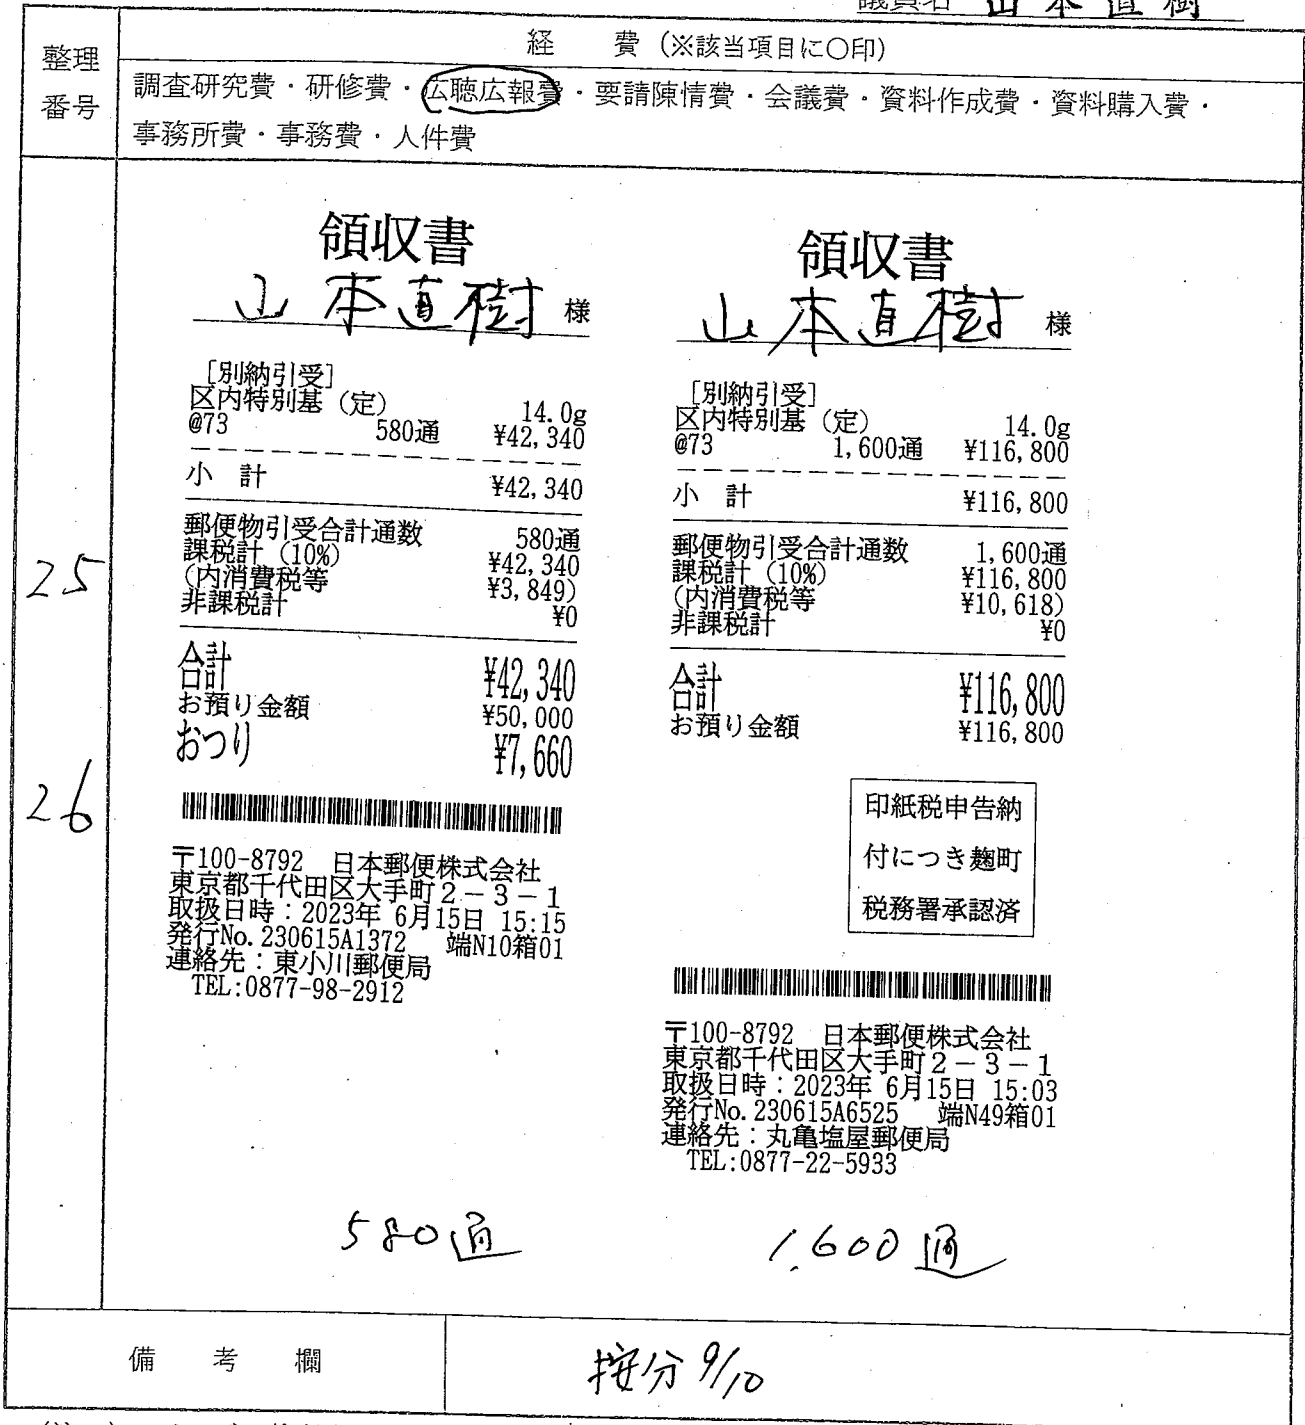 議員名 山本直樹
整理番号
経 費 (※該当項目に○印)
調査研究費・研修費・広聴広報費・要請陳情費・会議費・資料作成費・資料購入費・
事務所費・事務費・人件費
25
26
領収書
山本直樹 様
[別納引受]
区内特別基(定) 14.0g
@73 580通 ¥42,340
小 計 ¥42,340
郵便物引受合計通数 580通
課税計(10%) ¥42,340
(内消費税等 ¥3,849)
非課税計 ¥0
合計 ¥42,340
お預り金額 ¥50,000
おつり ¥7,660
〒100-8792 日本郵便株式会社
東京都千代田区大手町2-3-1
取扱日時:2023年 6月15日 15:15
発行No.230615A1372 端N10箱01
連絡先:東小川郵便局
TEL:0877-98-2912
580通
領収書
山本直樹 様
[別納引受]
区内特別基(定) 14.0g
@73 1,600通 ¥116,800
小 計 ¥116,800
郵便物引受合計通数 1,600通
課税計(10%) ¥116,800
(内消費税等 ¥10,618)
非課税計 ¥0
合計 ¥116,800
お預り金額 ¥116,800
印紙税申告納
付につき麹町
税務署承認済
〒100-8792 日本郵便株式会社
東京都千代田区大手町2-3-1
取扱日時:2023年 6月15日 15:03
発行No.230615A6525 端N49箱01
連絡先:丸亀塩屋郵便局
TEL:0877-22-5933
1,600通
備 考 欄
按分 9/10